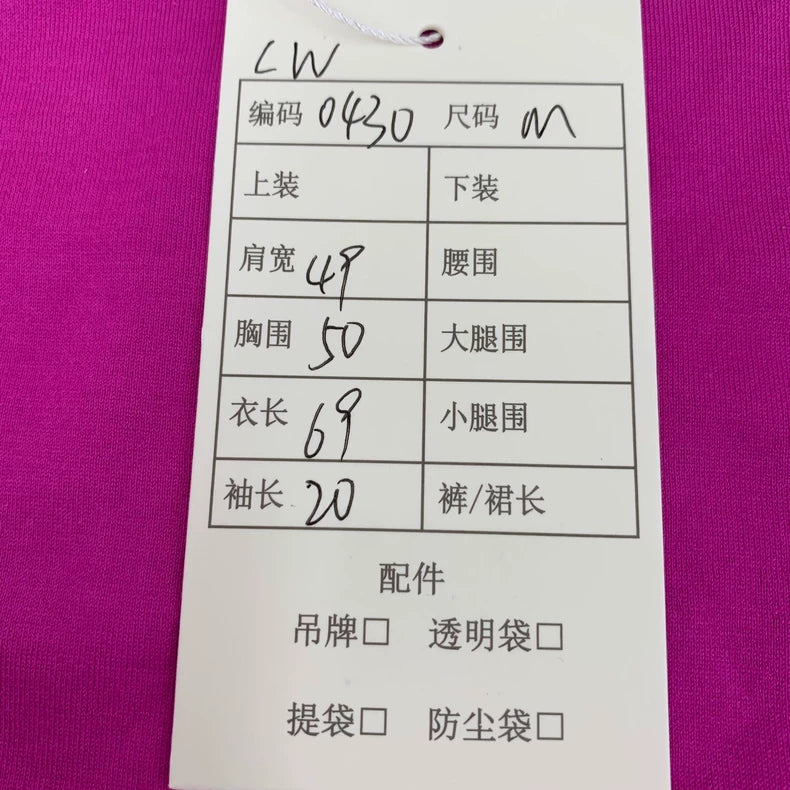 LW
编码 0430 尺码 M
上装 下装
肩宽 49 腰围
胸围 50 大腿围
衣长 69 小腿围
袖长 20 裤/裙长
配件
吊牌□ 透明袋□
提袋□ 防尘袋□